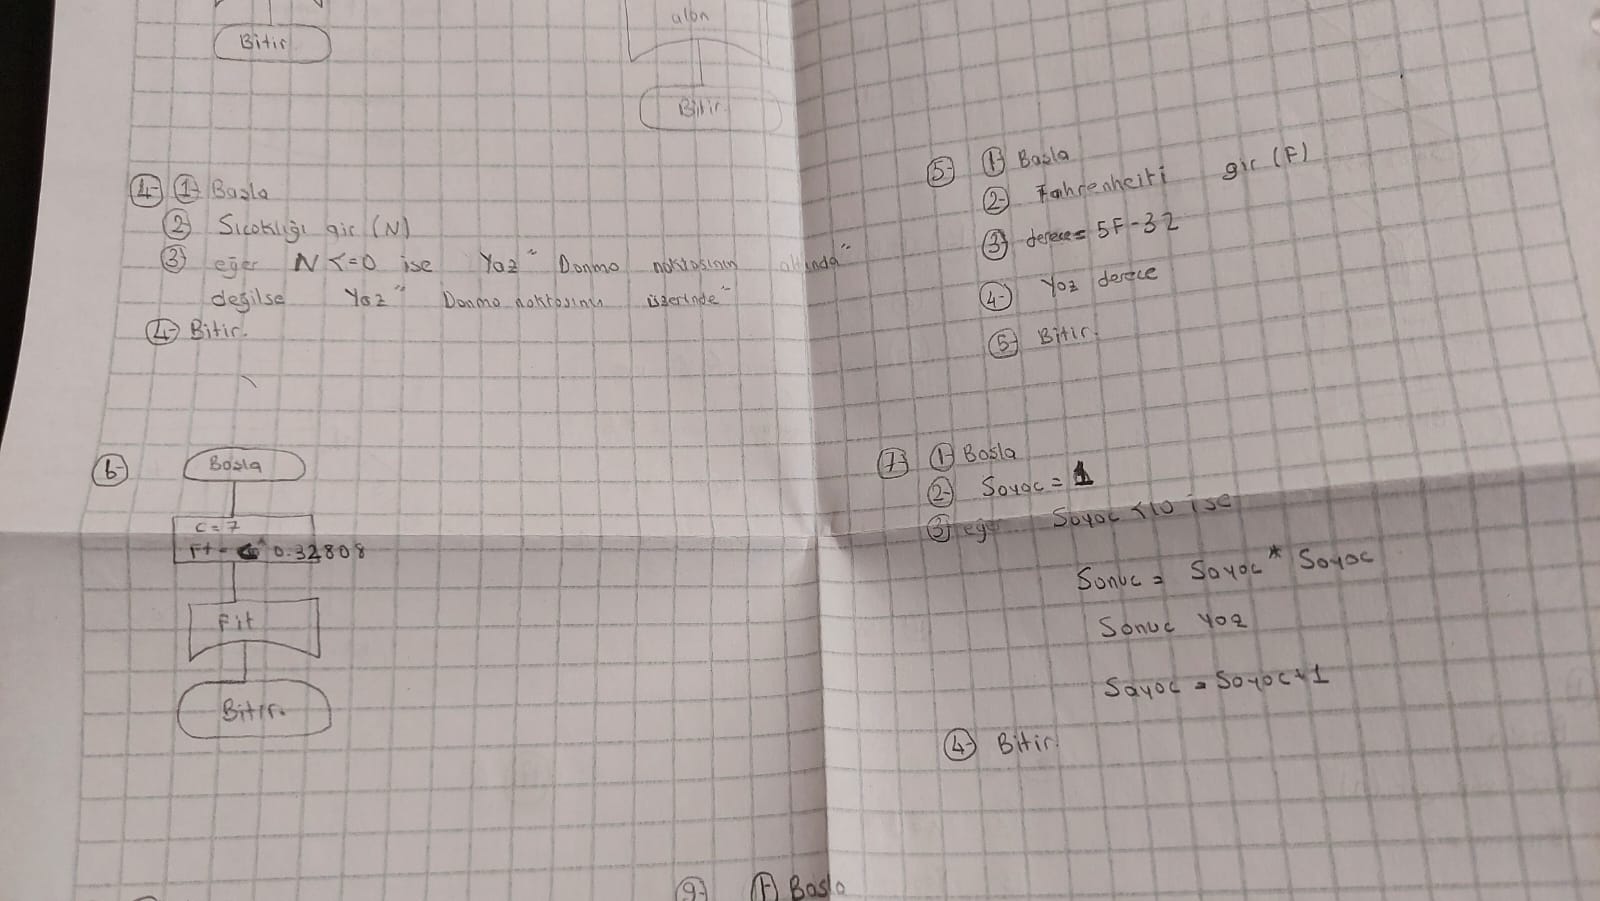 Bitir
alan
Bitir.
4-) 1-) Başla
2-) Sıcaklığı gir (N)
3-) eğer N <=0 ise Yaz " Donma noktasının altında"
değilse Yaz " Donma noktasının üzerinde"
4-) Bitir.
5-) 1-) Başla
2-) Fahrenheiti gir (F)
3-) derece= 5F-32
4-) Yaz derece
5-) Bitir.
6-) Başla
C=7
0.32808
Fit
Bitir.
7-) 1-) Başla
2-) Sayac = 1
3-) eğer Sayac <10 ise
Sonuc = Sayac * Sayac
Sonuc yaz
Sayac = Sayac+1
4-) Bitir.
9-) 1-) Başla